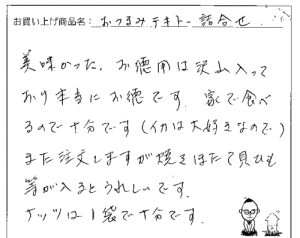 お買い上げ商品名: おつまみテキトー詰合せ
美味かった。お徳用は沢山入って
おり本当にお徳です。家で食べ
るので十分です(イカは大好きなので)
また注文しますが焼きほたて貝ひも
等が入るとうれしいです。
ナッツは1袋で十分です。